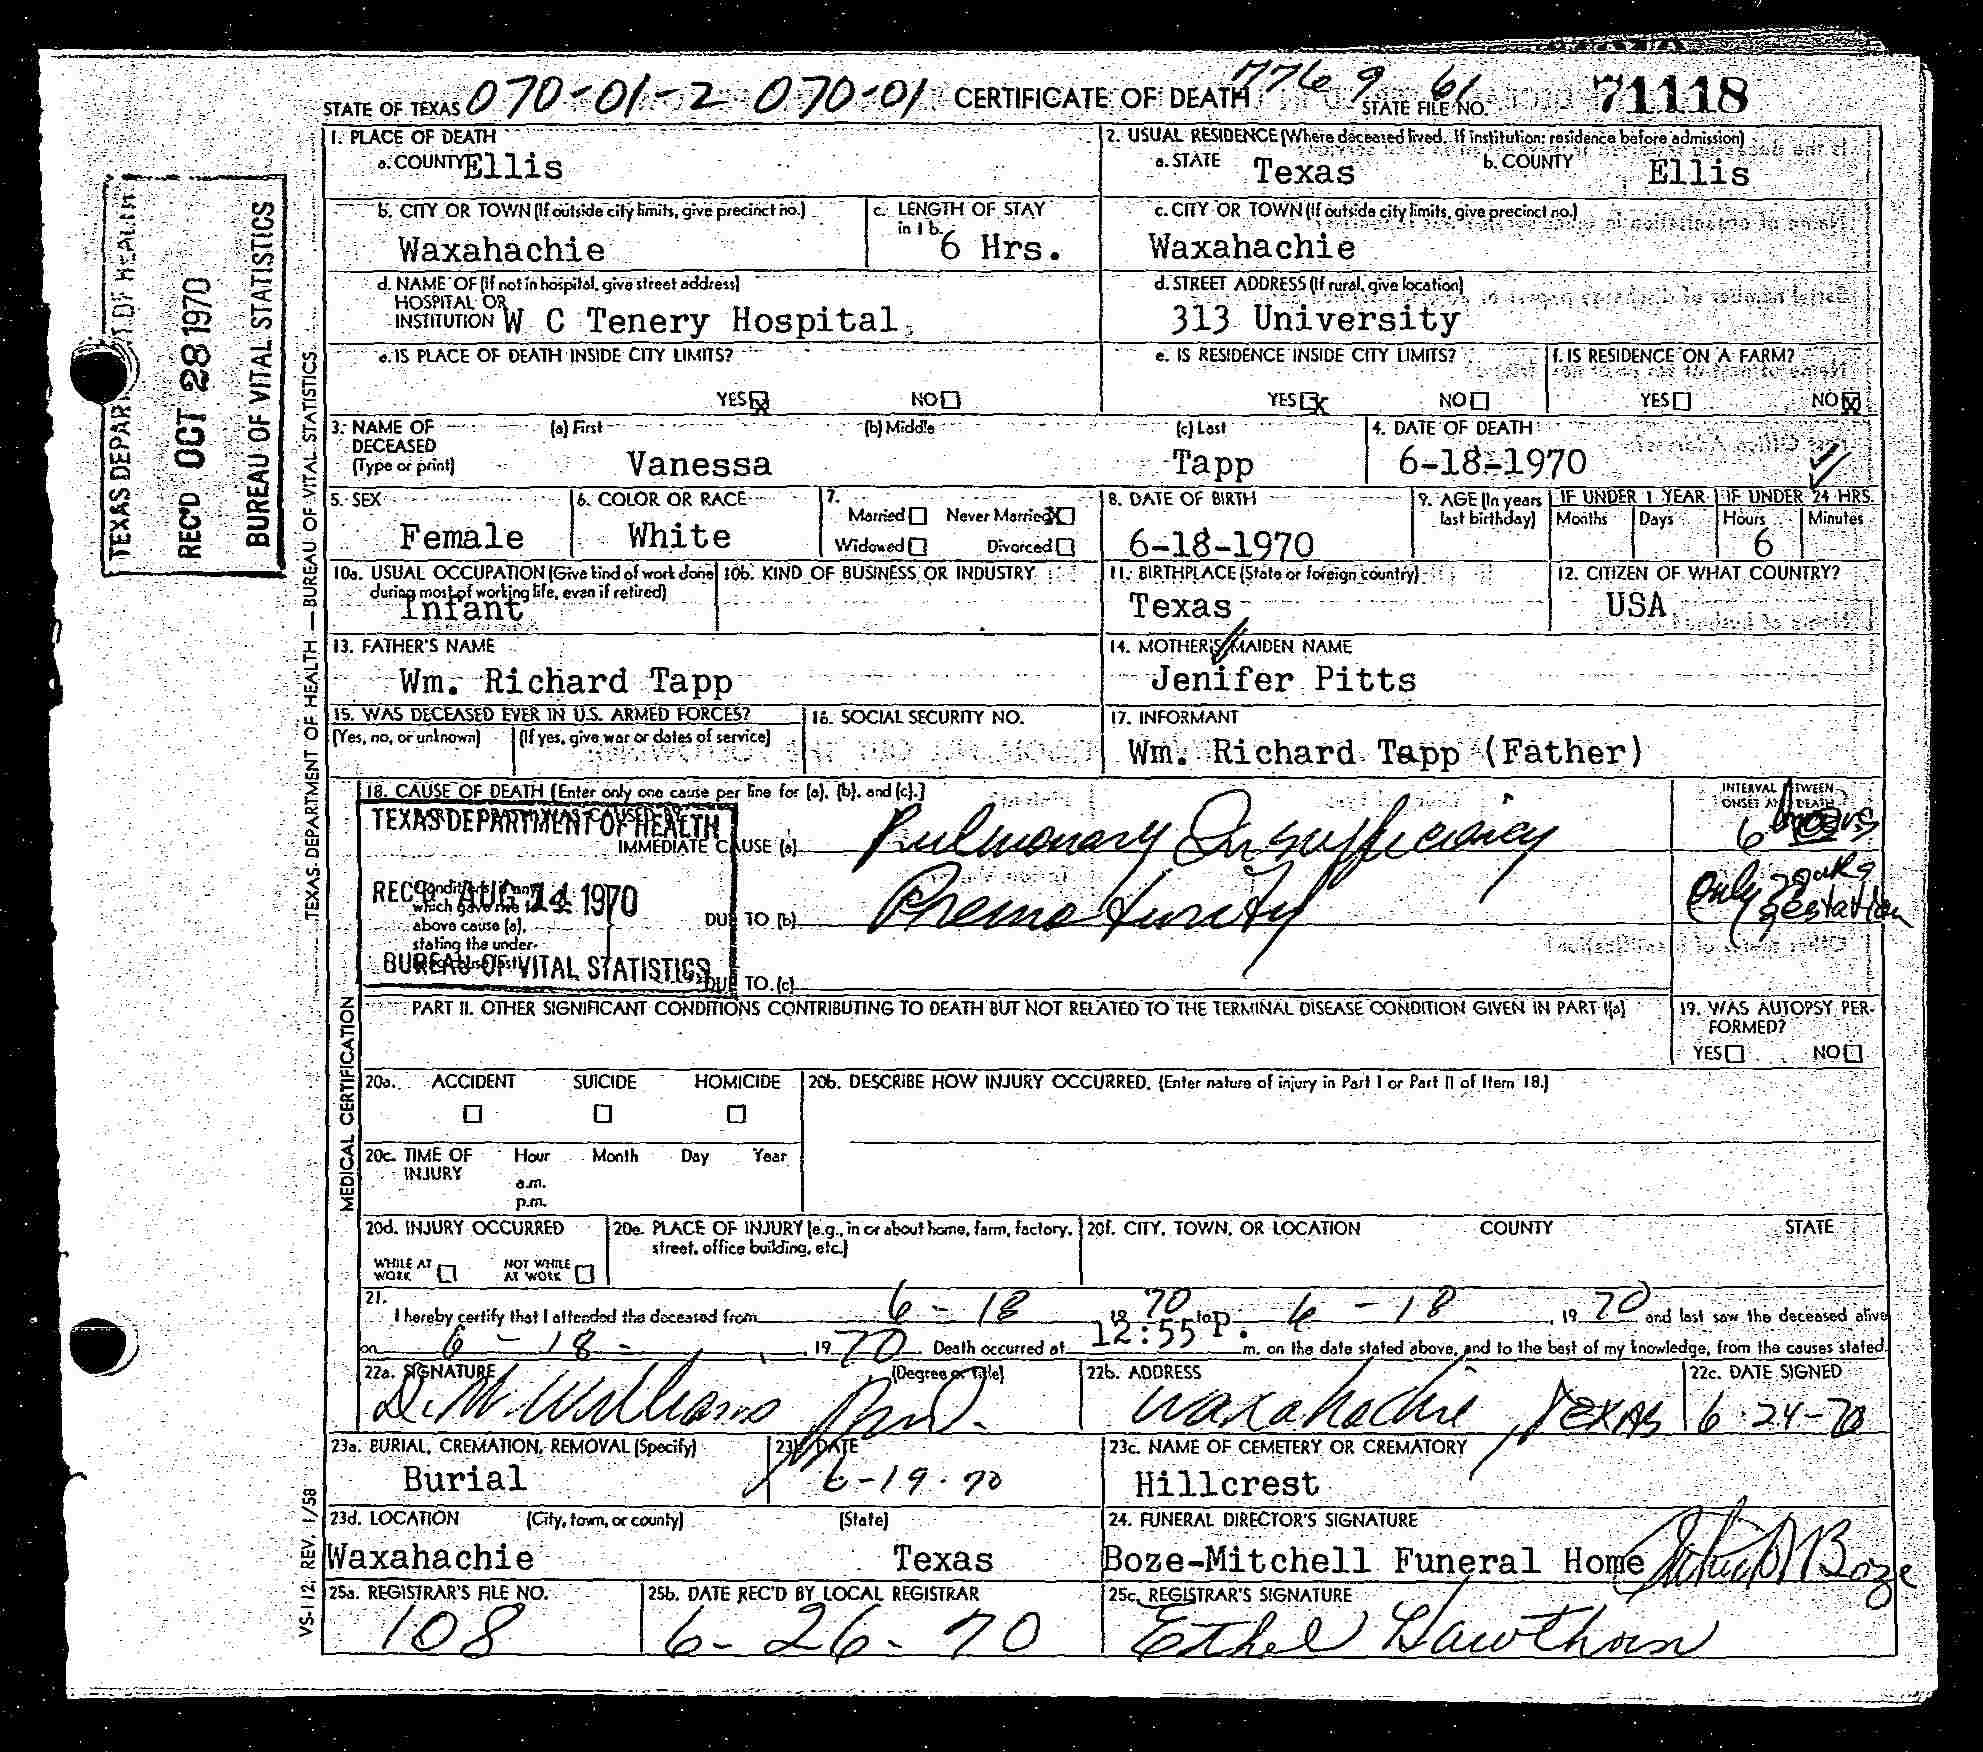 STATE OF TEXAS 070-01-2 070-01 CERTIFICATE OF DEATH 776 9 61 STATE FILE NO. 71118
1. PLACE OF DEATH
a. COUNTY Ellis
2. USUAL RESIDENCE (Where deceased lived. If institution: residence before admission)
a. STATE Texas b. COUNTY Ellis
b. CITY OR TOWN (If outside city limits, give precinct no.)
Waxahachie
c. LENGTH OF STAY in 1 b.
6 Hrs.
c. CITY OR TOWN (If outside city limits, give precinct no.)
Waxahachie
d. NAME OF (If not in hospital, give street address)
HOSPITAL OR
INSTITUTION W C Tenery Hospital
d. STREET ADDRESS (If rural, give location)
313 University
e. IS PLACE OF DEATH INSIDE CITY LIMITS?
YES X NO
e. IS RESIDENCE INSIDE CITY LIMITS?
YES X NO
f. IS RESIDENCE ON A FARM?
YES NO X
3. NAME OF DECEASED (Type or print)
(a) First (b) Middle (c) Last
Vanessa Tapp
4. DATE OF DEATH
6-18-1970
5. SEX
Female
6. COLOR OR RACE
White
7.
Married Never Married X
Widowed Divorced
8. DATE OF BIRTH
6-18-1970
9. AGE (In years last birthday)
IF UNDER 1 YEAR
Months Days
IF UNDER 24 HRS.
Hours Minutes
6
10a. USUAL OCCUPATION (Give kind of work done during most of working life, even if retired)
Infant
10b. KIND OF BUSINESS OR INDUSTRY
11. BIRTHPLACE (State or foreign country)
Texas
12. CITIZEN OF WHAT COUNTRY?
USA
13. FATHER'S NAME
Wm. Richard Tapp
14. MOTHER'S MAIDEN NAME
Jenifer Pitts
15. WAS DECEASED EVER IN U.S. ARMED FORCES?
(Yes, no, or unknown) (If yes, give war or dates of service)
16. SOCIAL SECURITY NO.
17. INFORMANT
Wm. Richard Tapp (Father)
18. CAUSE OF DEATH [Enter only one cause per line for (a), (b), and (c).]
INTERVAL BETWEEN
ONSET AND DEATH
IMMEDIATE CAUSE (a) Pulmonary Insufficiency
6 hours
which gave rise to
above cause (a),
stating the under-
DUE TO (b) Prematurity
only
gestation
DUE TO (c)
TEXAS DEPARTMENT OF HEALTH
REC'D AUG 14 1970
BUREAU OF VITAL STATISTICS
PART II. OTHER SIGNIFICANT CONDITIONS CONTRIBUTING TO DEATH BUT NOT RELATED TO THE TERMINAL DISEASE CONDITION GIVEN IN PART I(a)
19. WAS AUTOPSY PER-
FORMED?
YES NO
20a. ACCIDENT SUICIDE HOMICIDE
20b. DESCRIBE HOW INJURY OCCURRED. (Enter nature of injury in Part I or Part II of Item 18.)
20c. TIME OF INJURY Hour Month Day Year
a.m.
p.m.
20d. INJURY OCCURRED
WHILE AT WORK NOT WHILE AT WORK
20e. PLACE OF INJURY (e.g., in or about home, farm, factory, street, office building, etc.)
20f. CITY, TOWN, OR LOCATION COUNTY STATE
21.
I hereby certify that I attended the deceased from 6-18 19 70 to 6-18, 19 70 and last saw the deceased alive
on 6-18-, 19 70 Death occurred at 12:55 P. m. on the date stated above, and to the best of my knowledge, from the causes stated.
22a. SIGNATURE (Degree or title)
D. M. Williams M.D.
22b. ADDRESS
Waxahachie, Texas
22c. DATE SIGNED
6-24-70
23a. BURIAL, CREMATION, REMOVAL (Specify)
Burial
23b. DATE
6-19-70
23c. NAME OF CEMETERY OR CREMATORY
Hillcrest
23d. LOCATION (City, town, or county) (State)
Waxahachie Texas
24. FUNERAL DIRECTOR'S SIGNATURE
Boze-Mitchell Funeral Home Boze
25a. REGISTRAR'S FILE NO.
108
25b. DATE REC'D BY LOCAL REGISTRAR
6-26-70
25c. REGISTRAR'S SIGNATURE
Ethel Hawthorn
TEXAS DEPARTMENT OF HEALTH
REC'D OCT 28 1970
BUREAU OF VITAL STATISTICS
TEXAS DEPARTMENT OF HEALTH — BUREAU OF VITAL STATISTICS
MEDICAL CERTIFICATION
VS-112, REV. 1/58